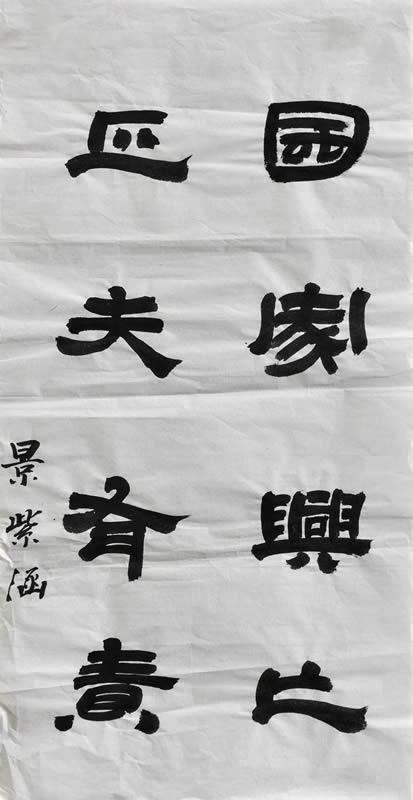 國家興亡
匹夫有責
景紫涵